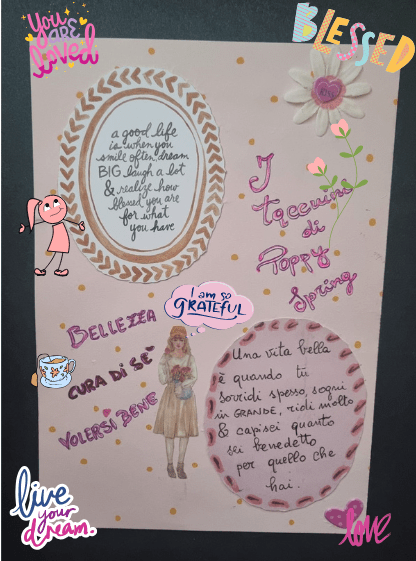 You
ARE
loved
BLESSED
a good life
is when you
smile often, dream
BIG, laugh a lot
& realize how
blessed you are
for what
you have
I
Taccuini
di
Poppy
Spring
I am so
GRATEFUL
BELLEZZA
CURA DI SÉ
VOLERSI BENE
Una vita bella
è quando tu
sorridi spesso, sogni
in GRANDE, ridi molto
& capisci quanto
sei benedetto
per quello che
hai.
live
your
dream.
love